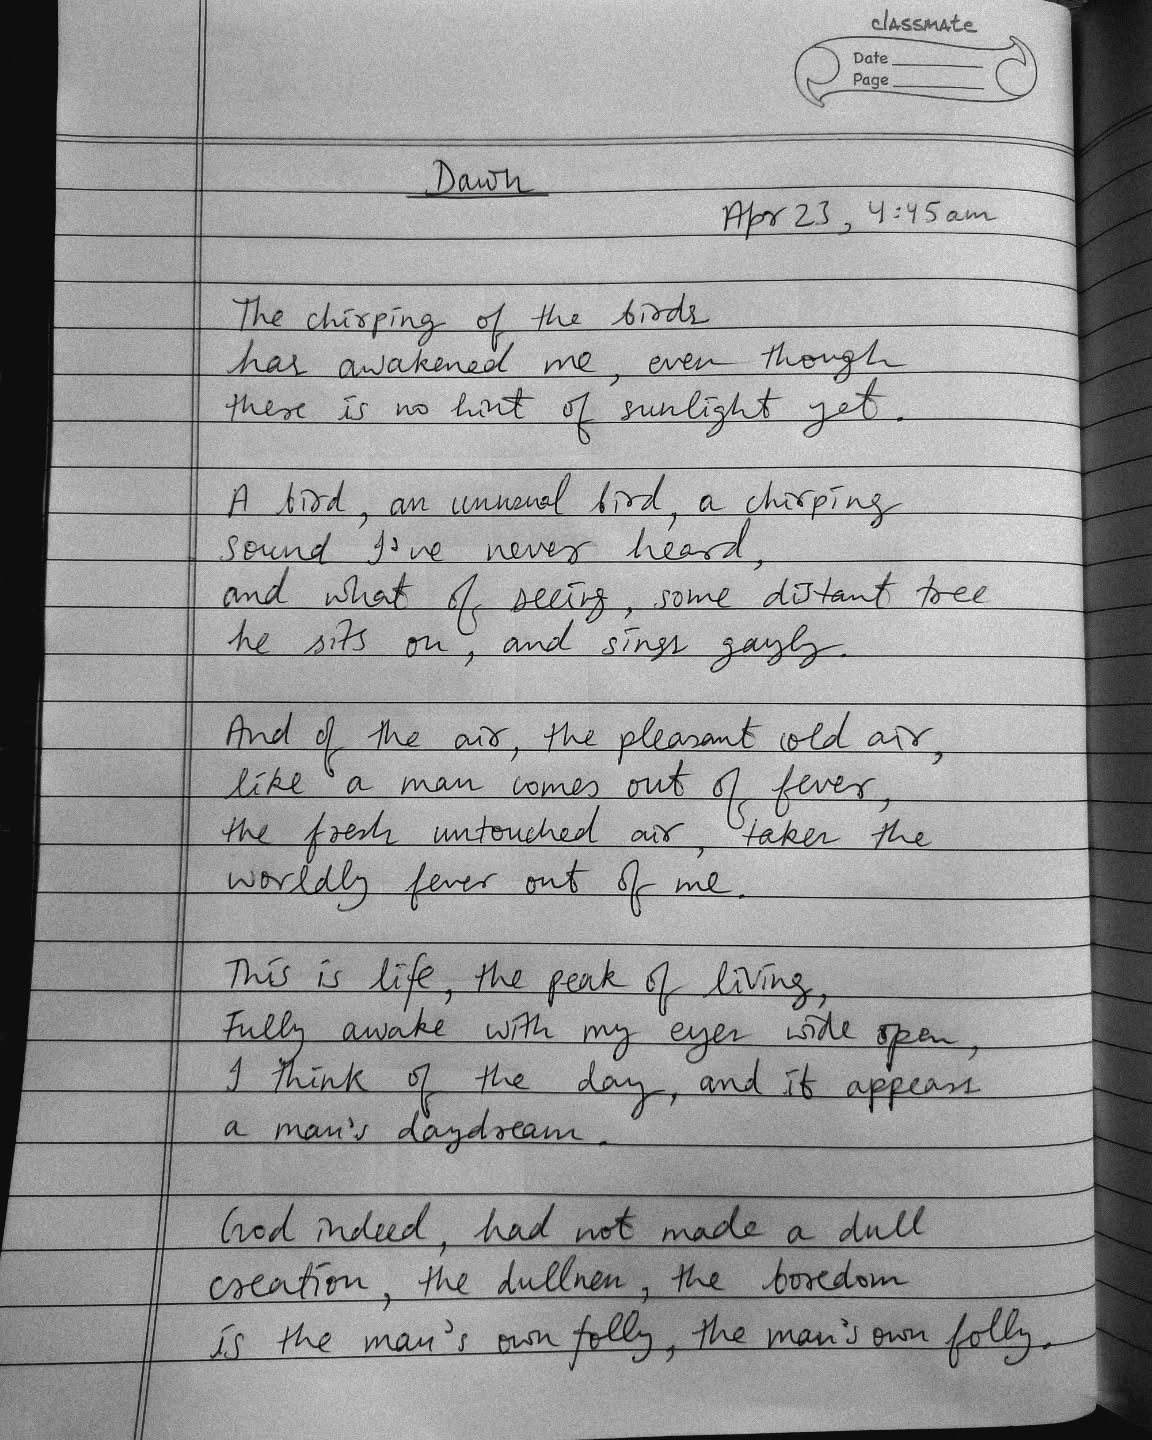 classmate
Date
Page
Dawn
Apr 23, 4:45 am
The chirping of the birds
has awakened me, even though
there is no hint of sunlight yet.
A bird, an unusual bird, a chirping
sound I've never heard,
and what of seeing, some distant tree
he sits on, and sings gayly.
And of the air, the pleasant cold air,
like a man comes out of fever,
the fresh untouched air, takes the
worldly fever out of me.
This is life, the peak of living,
Fully awake with my eyes wide open,
I think of the day, and it appears
a man's daydream.
God indeed, had not made a dull
creation, the dullness, the boredom
is the man's own folly, the man's own folly.